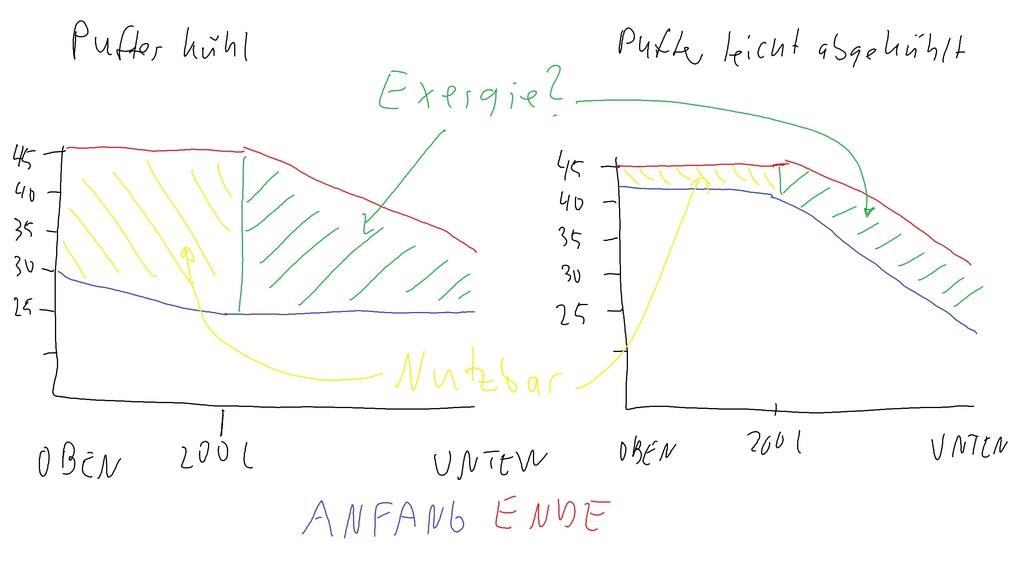 Puffer kühl
Puffer leicht abgekühlt
Exergie?
45
40
35
30
25
45
40
35
30
25
Nutzbar
OBEN 200 l UNTEN
OBEN 200 l UNTEN
ANFANG ENDE